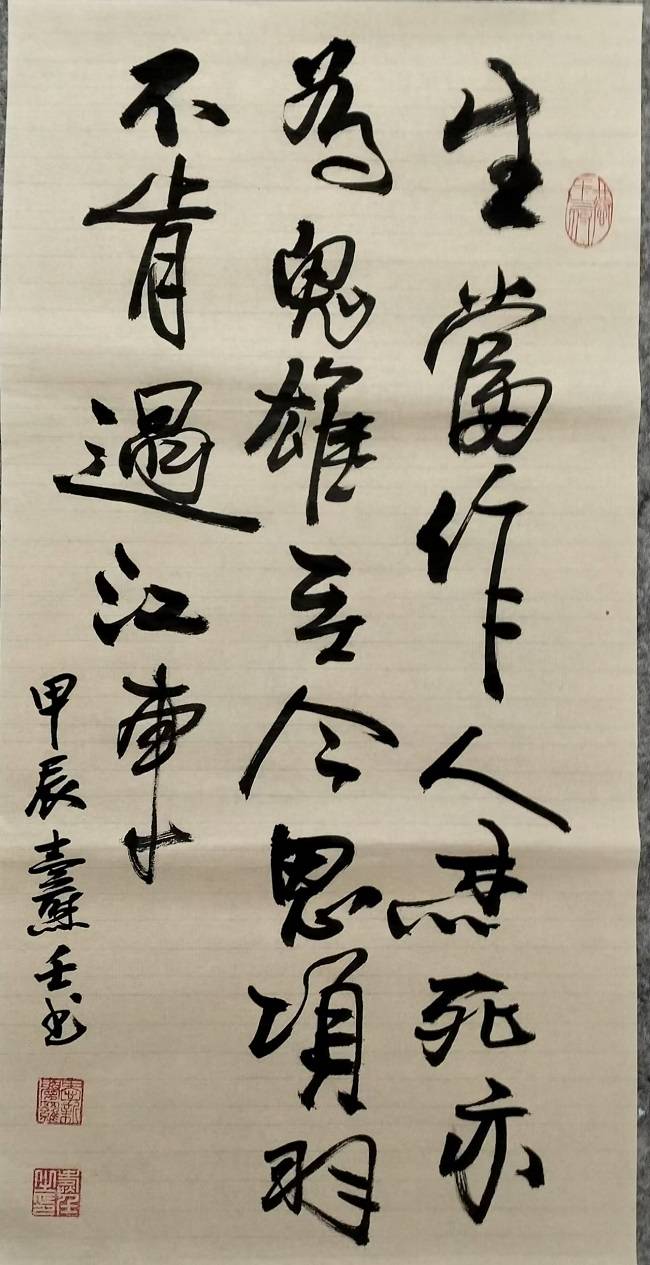 生當作人杰死亦
為鬼雄至今思項羽
不肯過江東
甲辰 壬书